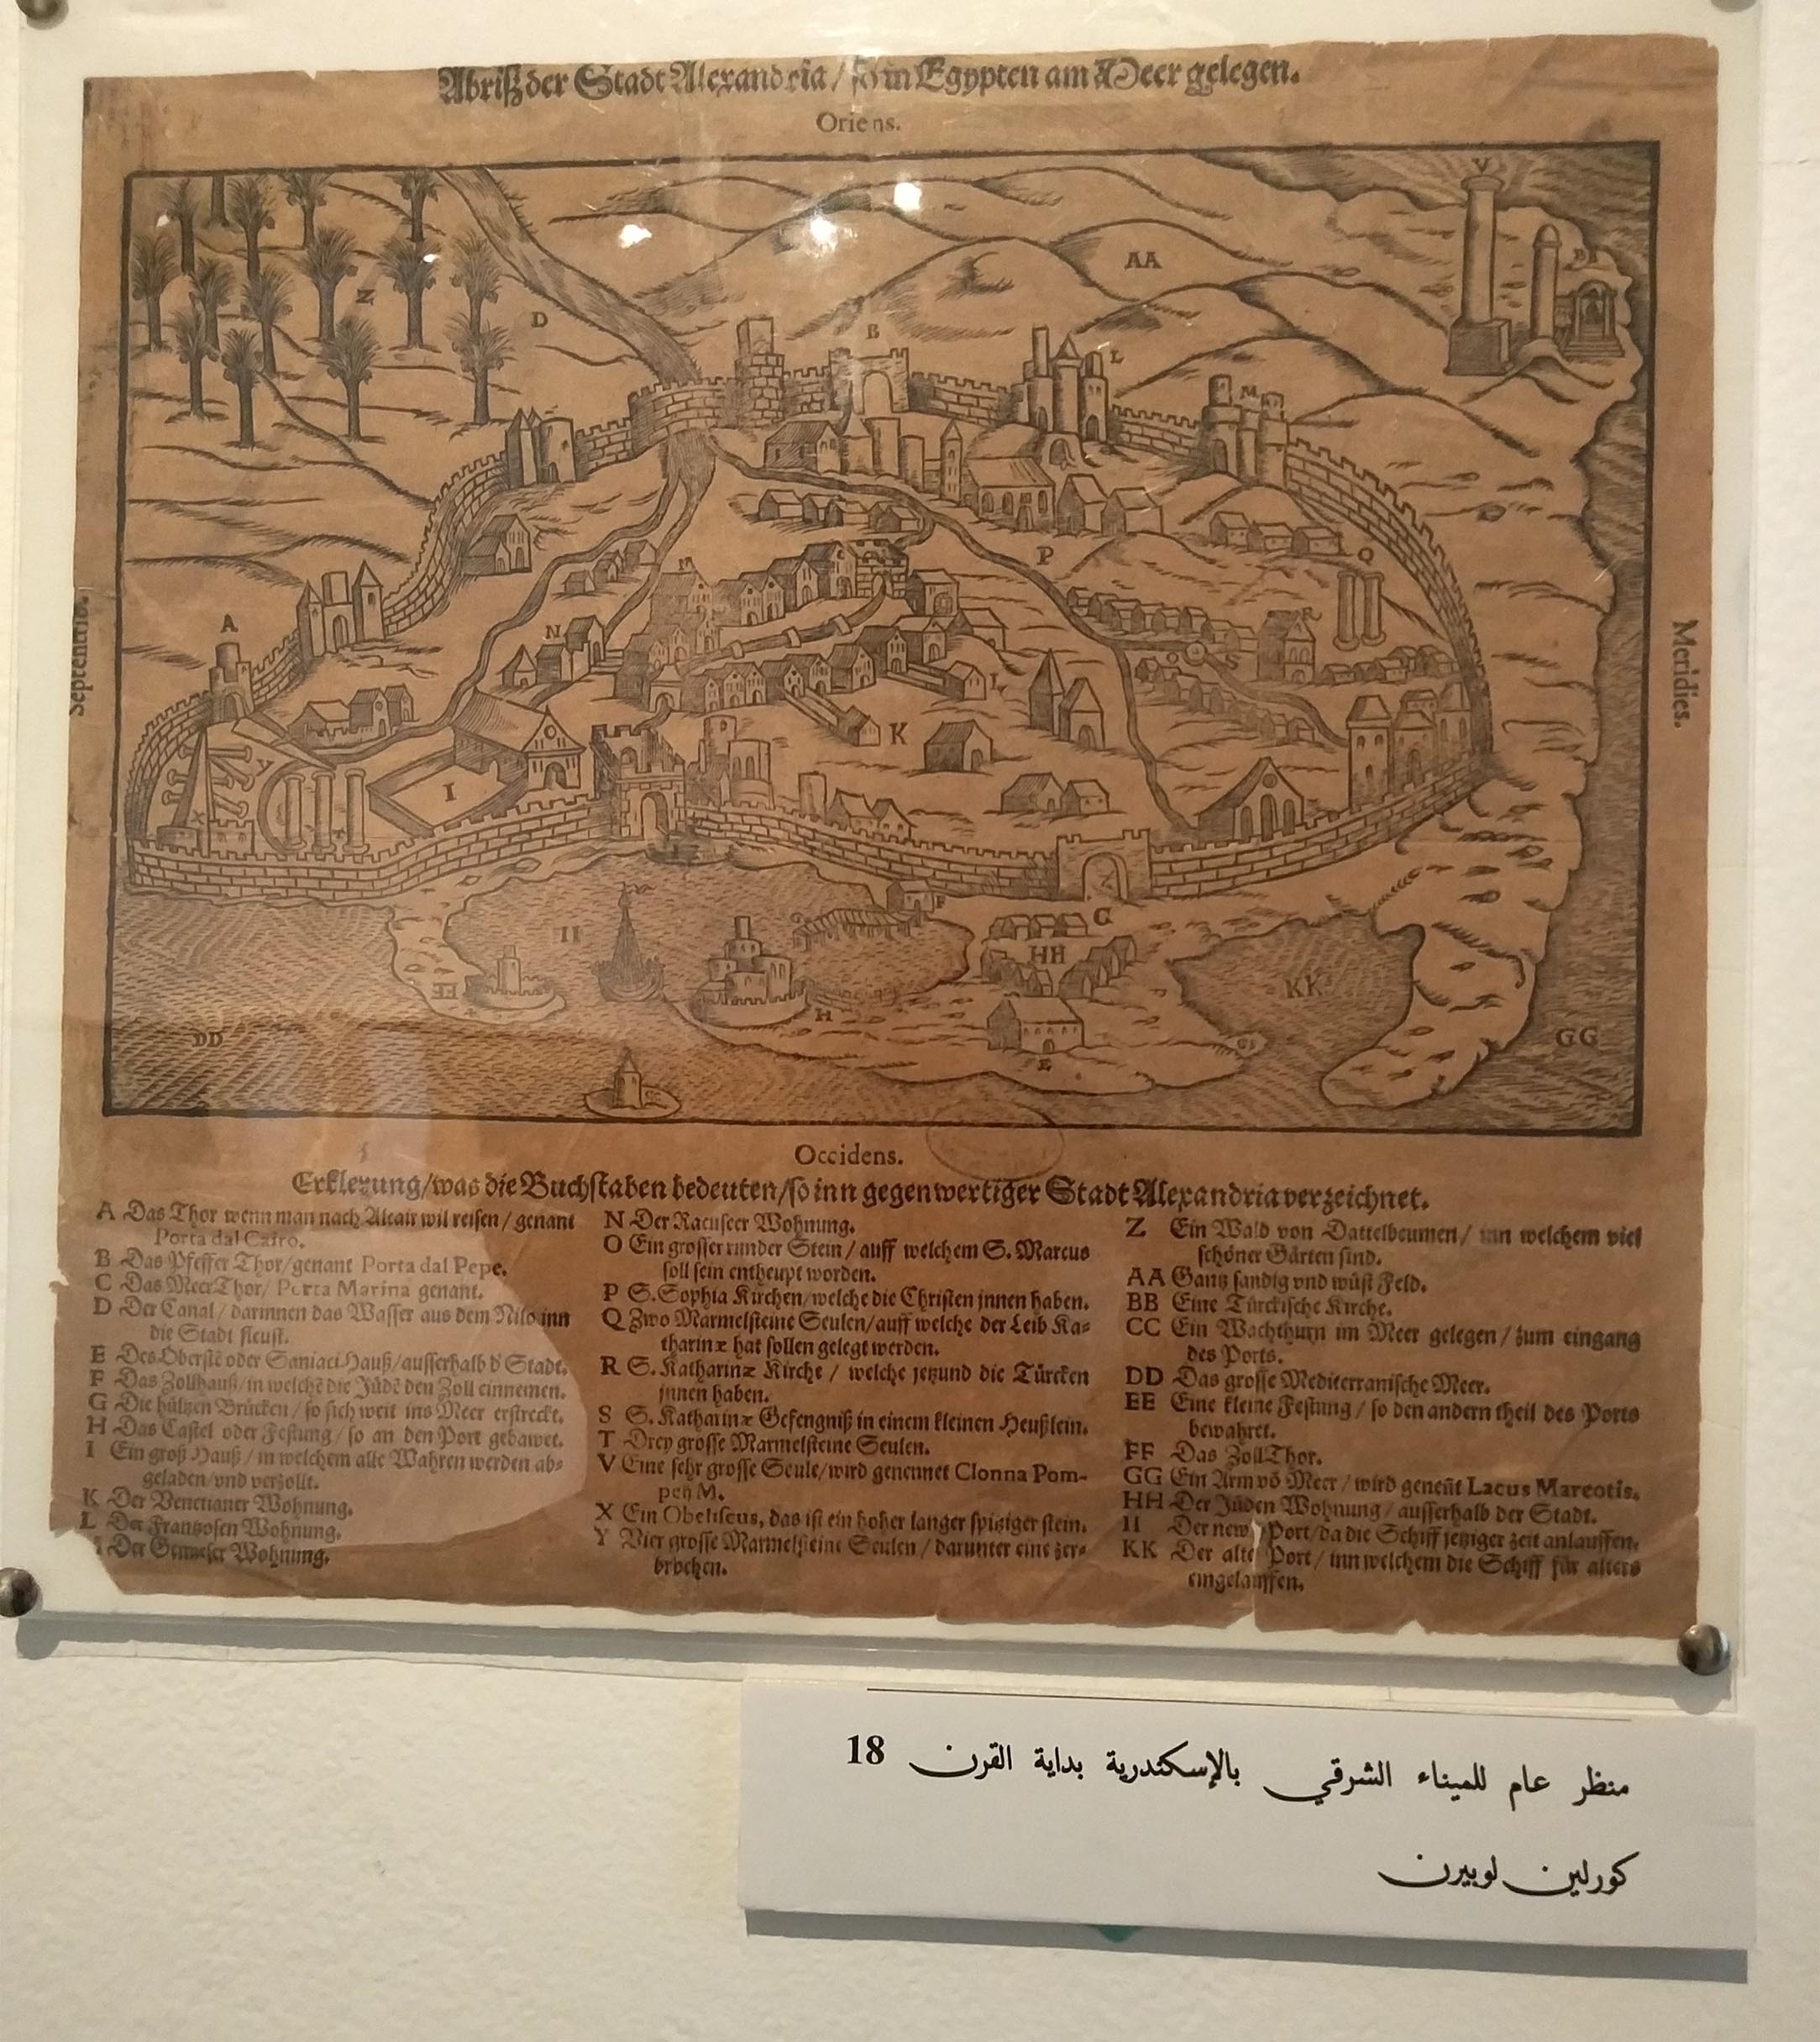 Abriß der Stadt Alexandria / so in Egypten am Meer gelegen.
Oriens.
Septentrio.
Meridies.
Occidens.
Erklerung/was die Buchstaben bedeuten/so inn gegenwertiger Stadt Alexandria verzeichnet.
A Das Thor wenn man nach Alcair wil reisen / genant
Porta dal Cairo.
B Das Pfeffer Thor/genant Porta dal Pepe.
C Das MeerThor/ Porta Marina genant.
D Der Canal / darinnen das Wasser aus dem Nilo inn
die Stadt fleust.
E Des Oberstē oder Saniaci Hauß/ausserhalb d' Stadt.
F Das Zollhauß/in welchē die Jüdē den Zoll einnemen.
G Die hültzen Brücken / so sich weit ins Meer erstreckt.
H Das Castel oder Festung / so an den Port gebawet.
I Ein groß Hauß / in welchem alle Wahren werden ab=
geladen/vnd verzollt.
K Der Venetianer Wohnung.
L Der Frantzosen Wohnung.
Der Genueser Wohnung.
N Der Racuseer Wohnung.
O Ein grosser runder Stein / auff welchem S. Marcus
soll sein entheupt worden.
P S. Sophia Kirchen/welche die Christen jnnen haben.
Q Zwo Marmelsteine Seulen/auff welche der Leib Ka=
tharinæ hat sollen gelegt werden.
R S. Katharinæ Kirche / welche jetzund die Türcken
jnnen haben.
S S. Katharinæ Gefengniß in einem kleinen Heußlein.
T Drey grosse Marmelsteine Seulen.
V Eine sehr grosse Seule/wird genennet Clonna Pom-
peij M.
X Ein Obeliscus, das ist ein hoher langer spitziger stein.
Y Vier grosse Marmelsteine Seulen / darunter eine zer=
brochen.
Z Ein Wald von Dattelbeumen / inn welchem viel
schöner Gärten sind.
AA Gantz sandig vnd wüst Feld.
BB Eine Türckische Kirche.
CC Ein Wachthurn im Meer gelegen / zum eingang
des Ports.
DD Das grosse Mediterranische Meer.
EE Eine kleine Festung / so den andern theil des Ports
bewahret.
FF Das ZollThor.
GG Ein Arm vō Meer / wird geneñt Lacus Mareotis.
HH Der Jüden Wohnung / ausserhalb der Stadt.
II Der new Port/da die Schiff jetziger zeit anlauffen.
KK Der alte Port / inn welchem die Schiff für alters
eingelauffen.
منظر عام للميناء الشرقي بالإسكندرية بداية القرن 18
كورلين لوبيرن